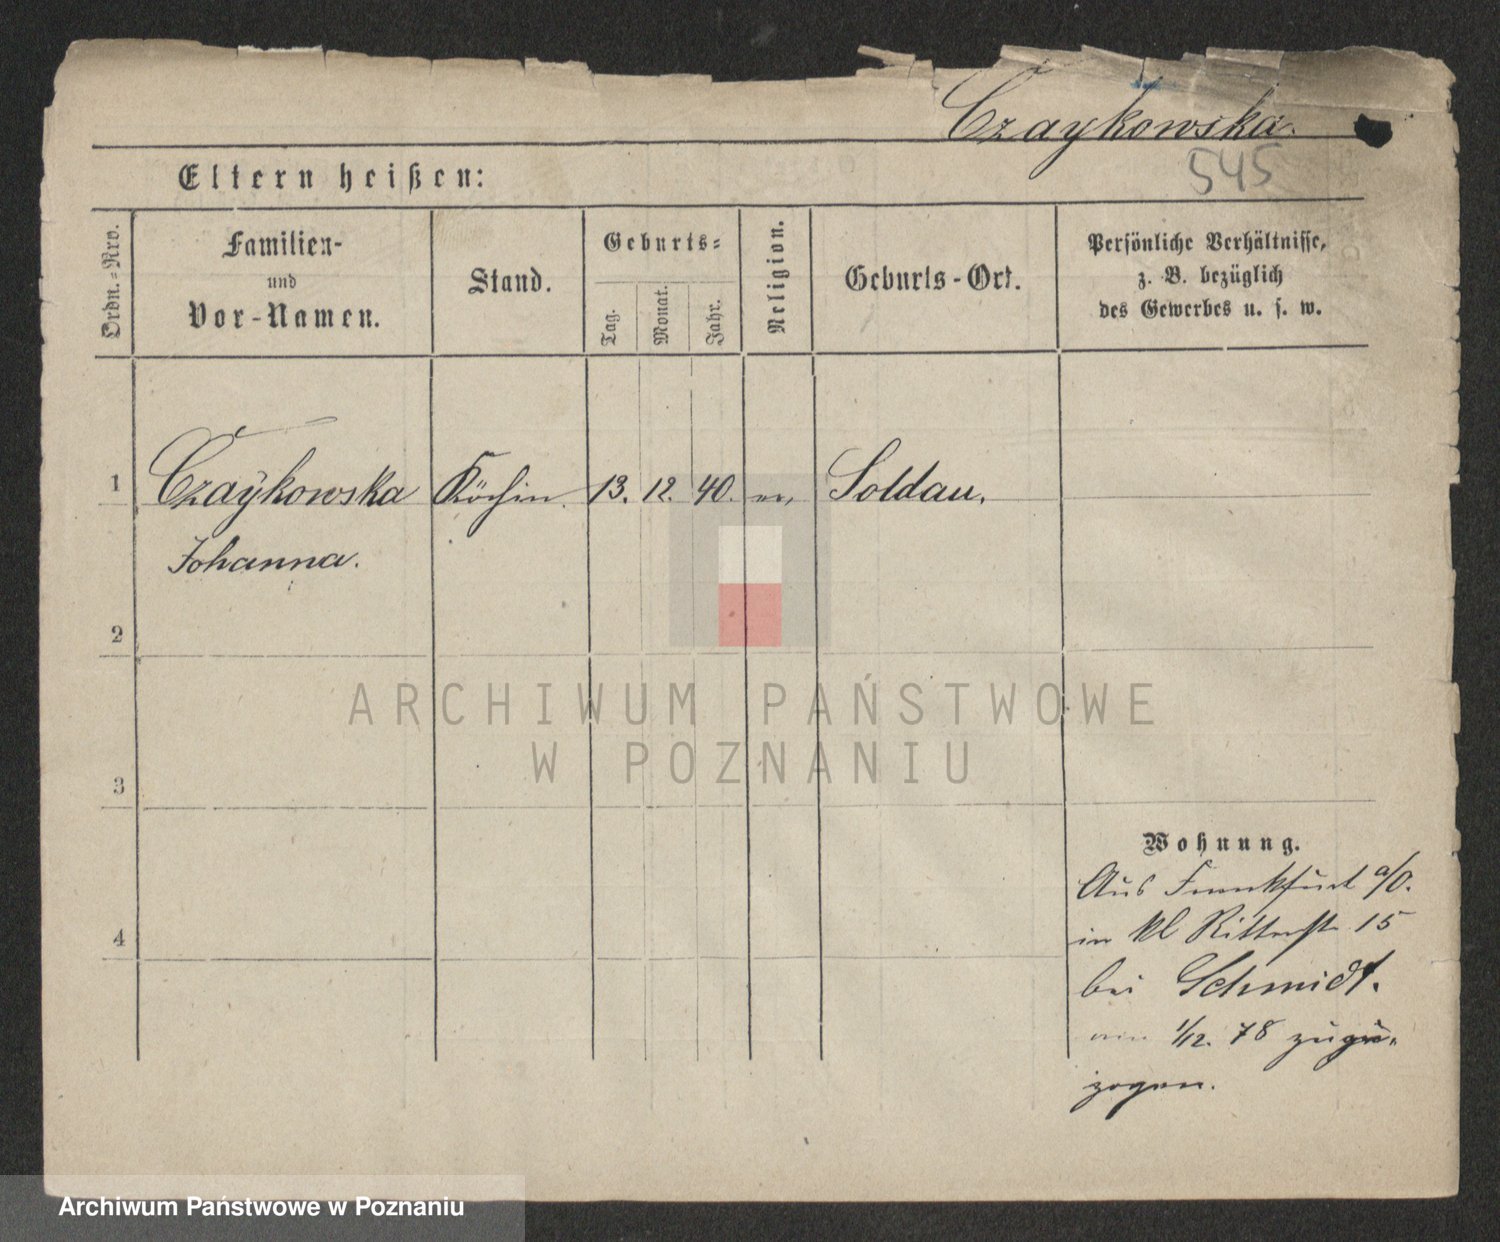 Czaykowska.
545
Eltern heißen:
Ordn.-Nro.
Familien-
und
Vor-Namen.
Stand.
Geburts-
Tag.
Monat.
Jahr.
Religion.
Geburts-Ort.
Persönliche Verhältnisse,
z. B. bezüglich
des Gewerbes u. s. w.
1 Czaykowska Köchin. 13. 12. 40. Soldau.
Johanna.
2
3
4
ARCHIWUM PAŃSTWOWE
W POZNANIU
Wohnung.
Aus Frankfurt a/O.
in kl Ritterstr 15
bei Schmidt.
am 1/12. 78 zuge-
zogen.
Archiwum Państwowe w Poznaniu